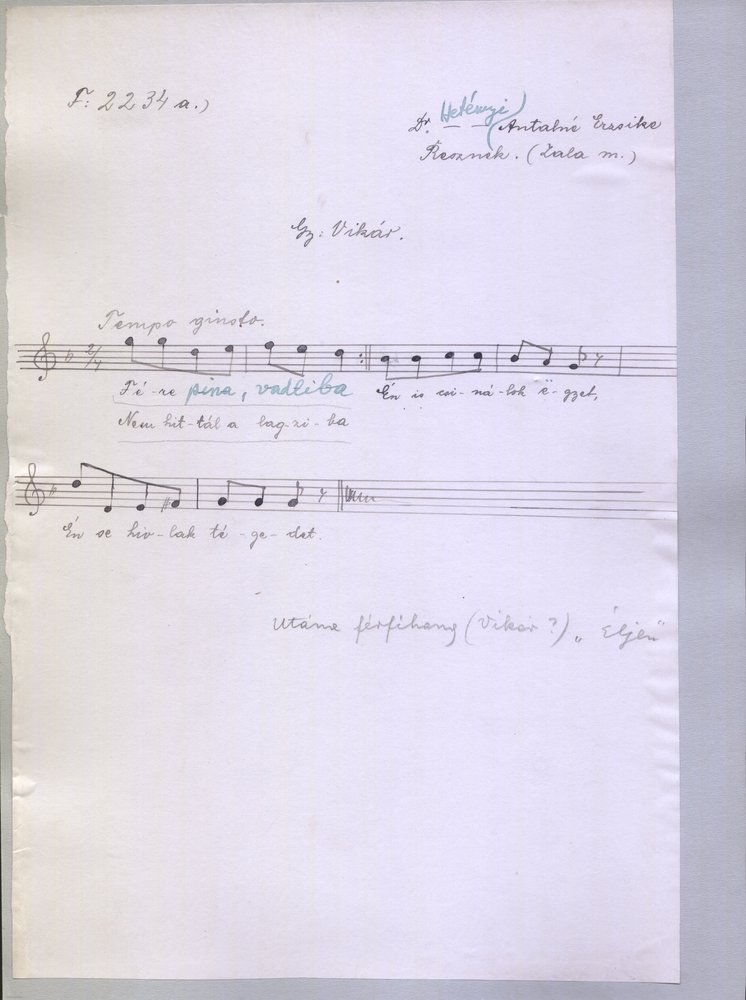 F: 2234 a.)
Dr. Hetényi Antalné Erzsike
Resznek. (Zala m.)
Gy: Vikár.
Tempo giusto.
2/4
Té-re pina, vadliba Én is csi-ná-lok ë-gyet,
Nem hít-tál a lag-zi-ba
Én se hív-lak té-ge-det.
Utána férfihang (Vikár?) „Éljen"